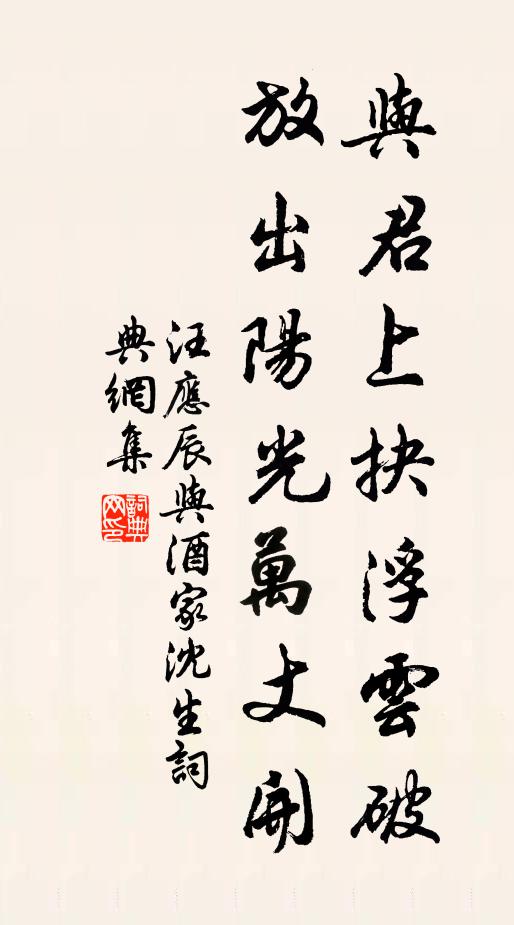 與君上抉浮雲破
放出陽光萬丈開
汪應辰與酒家沈生詞
典網集
詞典网印